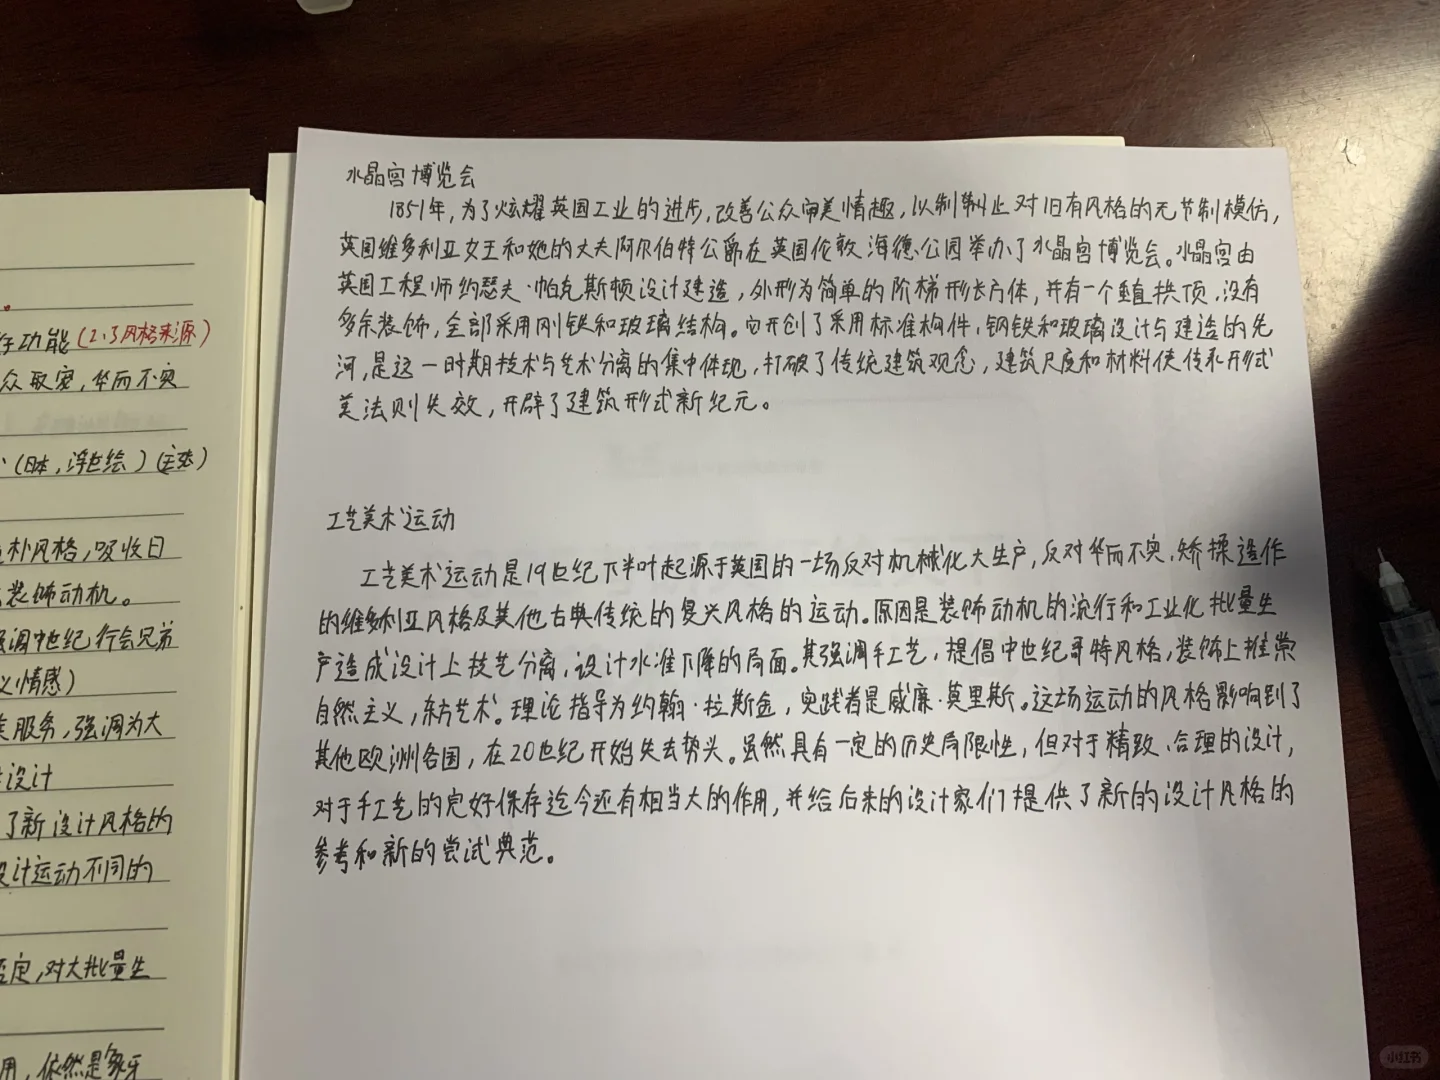 水晶宫博览会
1851年,为了炫耀英国工业的进步,改善公众审美情趣,以制止对旧有风格的无节制模仿,
英国维多利亚女王和她的丈夫阿尔伯特公爵在英国伦敦海德公园举办了水晶宫博览会。水晶宫由
英国工程师约瑟夫·帕克斯顿设计建造,外形为简单的阶梯形长方体,并有一个垂直拱顶,没有
多余装饰,全部采用刚铁和玻璃结构。它开创了采用标准构件,钢铁和玻璃设计与建造的先
河,是这一时期技术与艺术分离的集中体现,打破了传统建筑观念,建筑尺度和材料使传统形式
美法则失效,开辟了建筑形式新纪元。
工艺美术运动
工艺美术运动是19世纪下半叶起源于英国的一场反对机械化大生产,反对华而不实、矫揉造作
的维多利亚风格及其他古典传统的复兴风格的运动。原因是装饰动机的流行和工业化批量生
产造成设计上技艺分离,设计水准下降的局面。其强调手工艺,提倡中世纪哥特风格,装饰上推崇
自然主义,东方艺术。理论指导为约翰·拉斯金,实践者是威廉·莫里斯。这场运动的风格影响到了
其他欧洲各国,在20世纪开始失去势头。虽然具有一定的历史局限性,但对于精致、合理的设计,
对于手工艺的完好保存迄今还有相当大的作用,并给后来的设计家们提供了新的设计风格的
参考和新的尝试典范。
功能(2.3风格来源)
众取宠,华而不实
(日本,浮世绘)
朴风格,吸收日
装饰动机。
强调中世纪行会兄弟
义情感)
服务,强调为大
设计
了新设计风格的
设计运动不同的
否定,对大批量生
用,依然是象牙
小红书